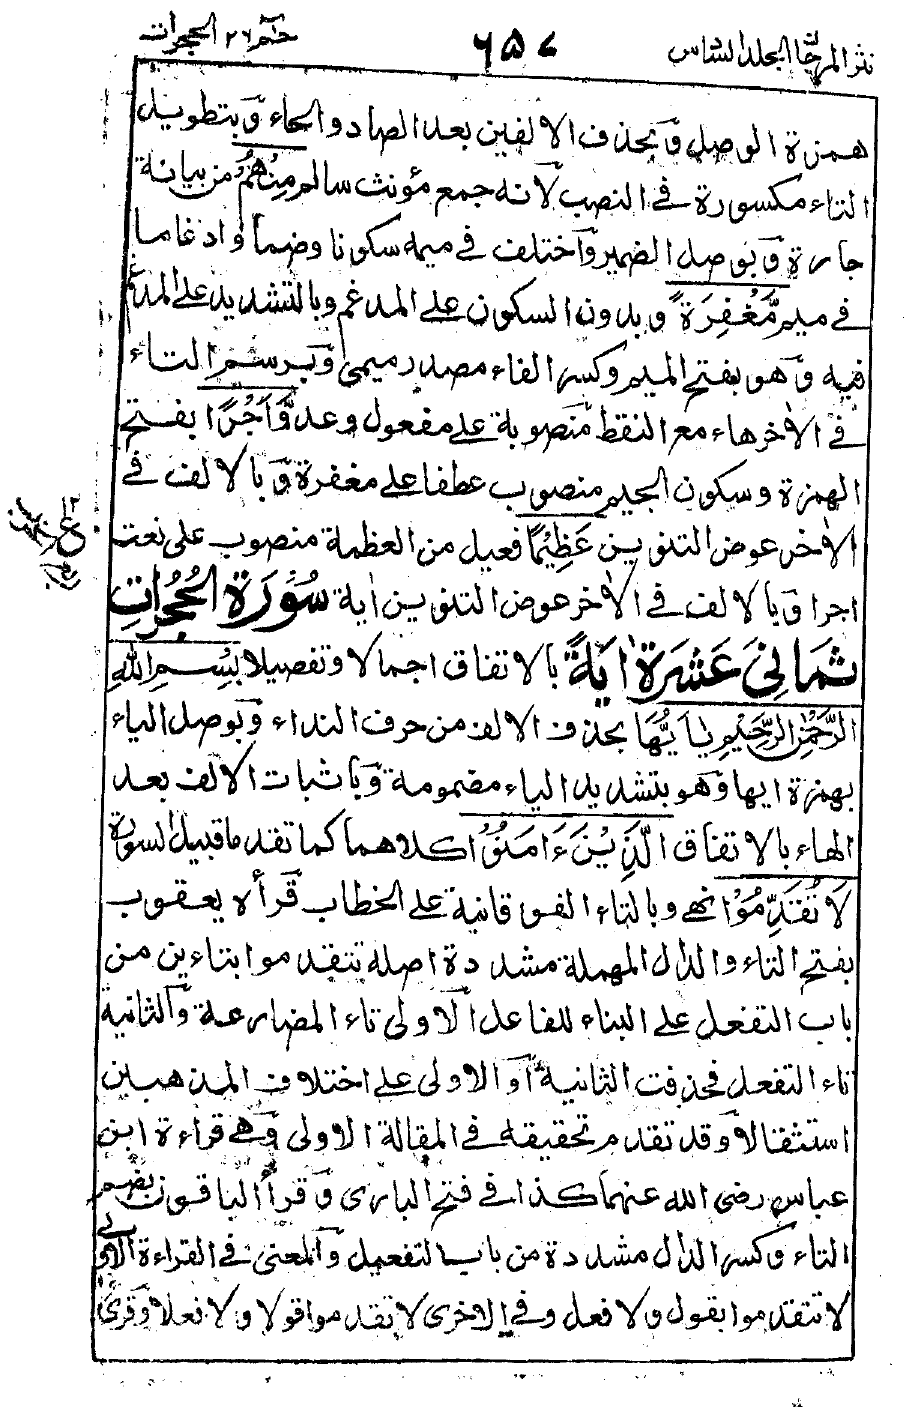 نثر المرجان المجلد السادس ٦٥٧ حٰمٓ ٢٦ الحجرات
همزة الوصل وَبحذف الالفين بعد الصاد والحاء وَبتطويل
التاء مكسورة فى النصب لانه جمع مؤنث سالم مِنْهُمْ من بيانة
جارة وَبوصل الضمير وَاختلف فى ميمه سكونا وضما وادغاما
فى ميم مَّغْفِرَةً وبدون السكون على المدغم وبالتشديد على المدغم
فيه وَهو بفتح الميم وكسر الفاء مصدر ميمى وَبرسم التاء
فى الاٰخر هاء مع النقط منصوبة على مفعول وعد وَّاَجْرًا بفتح
الهمزة وسكون الجيم منصوب عطفا على مغفرة وَبالالف فى
الاٰخر عوض التنوين عَظِيْمًا فعيل من العظمة منصوب على نعت
اجرا وَبالالف فى الاٰخر عوض التنوين اٰية سُوْرَةُ الْحُجُرَاتِ
ثَمَانِىَ عَشَرَةَ اٰيَةً بالاتفاق اجمالا وتفصيلا بِسْمِ اللّٰهِ
الرَّحْمٰنِ الرَّحِيْمِ يٰاَيُّهَا بحذف الالف من حرف النداء وَبوصل الياء
بهمزة ايها وَهو بتشديد الياء مضمومة وَباثبات الالف بعد
الهاء بالاتفاق الَّذِيْنَ ءَامَنُوْا كلاهما كما تقدما قبيل السورة
لَا تُقَدِّمُوْا نهى وبالتاء الفوقانية على الخطاب قرأه يعقوب
بفتح التاء والدال المهملة مشددة اصله تتقدموا بتاءين من
باب التفعل على البناء للفاعل الاولى تاء المضارعة وَالثانية
تاء التفعل فحذفت الثانية اَو الاولى على اختلاف المذهبين
استثقالا وَقد تقدم تحقيقه فى المقالة الاولى وَهى قراءة ابن
عباس رضى الله عنهما كذا فى فتح البارى وَقرأ الباقون بضم
التاء وكسر الدال مشددة من باب التفعيل وَالمعنى فى القراءة الاولى
لا تتقدموا بقول ولا فعل وفى الاخرى لا تقدموا قولا ولا فعلا وَقرئ